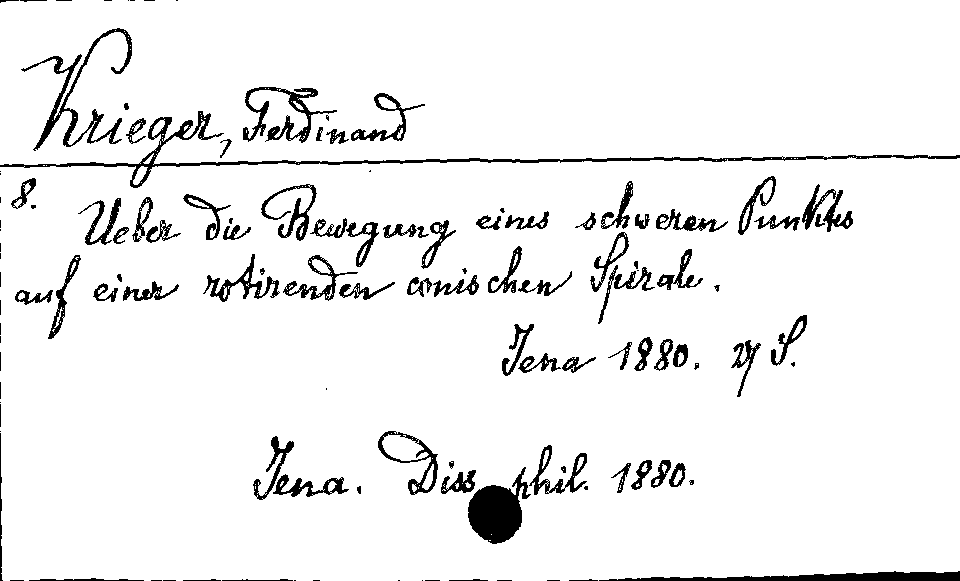 Krieger, Ferdinand
8.
Ueber die Bewegung eines schweren Punktes
auf einer rotirenden conischen Spirale.
Jena 1880. 27 S.
Jena. Diss phil. 1880.